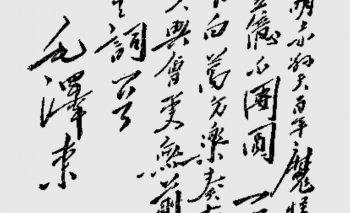 明赤縣天百年魔怪
五億不團圓一
下白萬方樂奏有
人興會更無前
詞
毛澤東